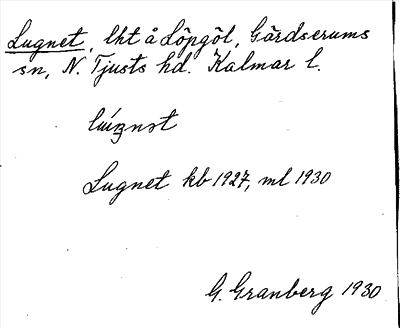 Lugnet, lht å Löpgöl, Gärdserums
sn, N. Tjusts hd. Kalmar l.
Lugnet kb 1927, ml 1930
G. Granberg 1930